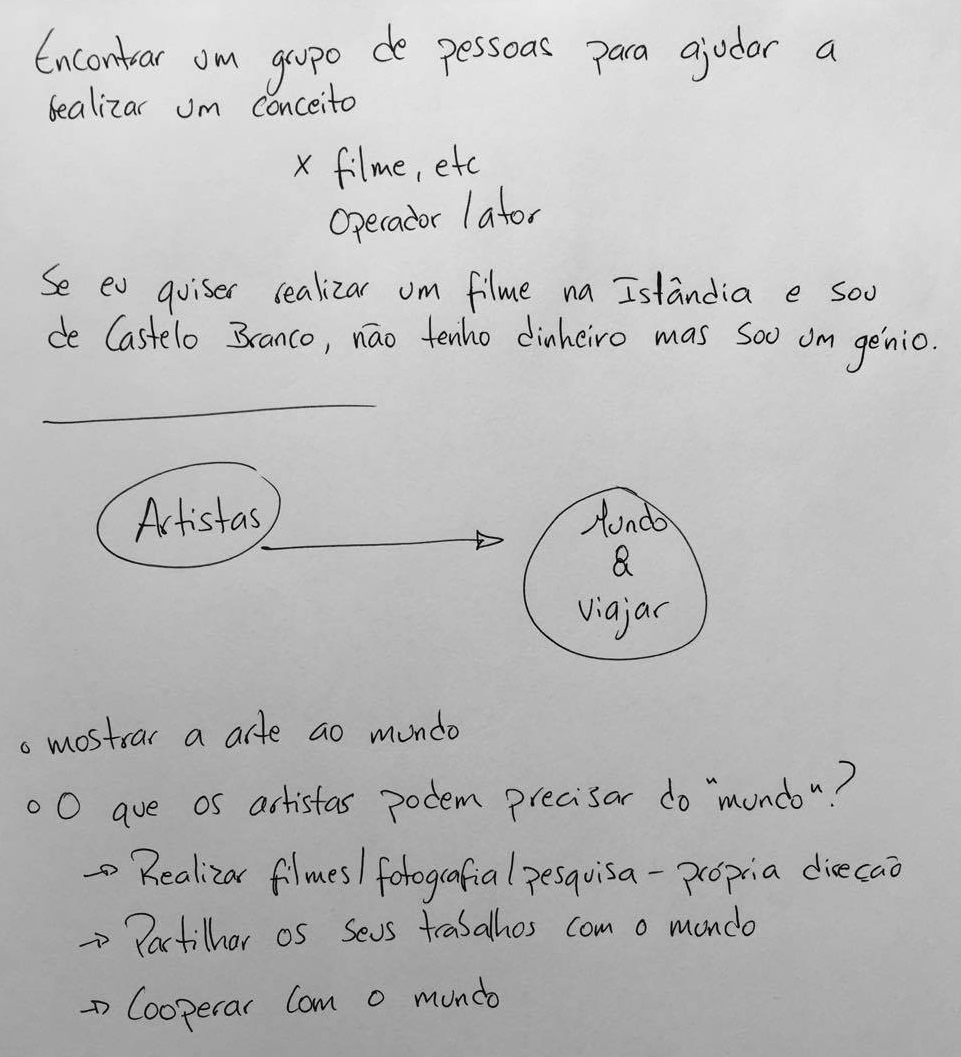 Encontrar um grupo de pessoas para ajudar a
realizar um conceito
x filme, etc
Operador / ator
Se eu quiser realizar um filme na Istândia e sou
de Castelo Branco, não tenho dinheiro mas sou um génio.
Artistas
Mundo
&
viajar
o mostrar a arte ao mundo
o O que os artistas podem precisar do "mundo"?
→ Realizar filmes/fotografia/pesquisa - própria direcção
→ Partilhar os seus trabalhos com o mundo
→ Cooperar com o mundo